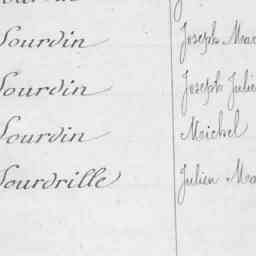 Sourdin Joseph
Sourdin Joseph
Sourdin Michel
Sourdrille Julien